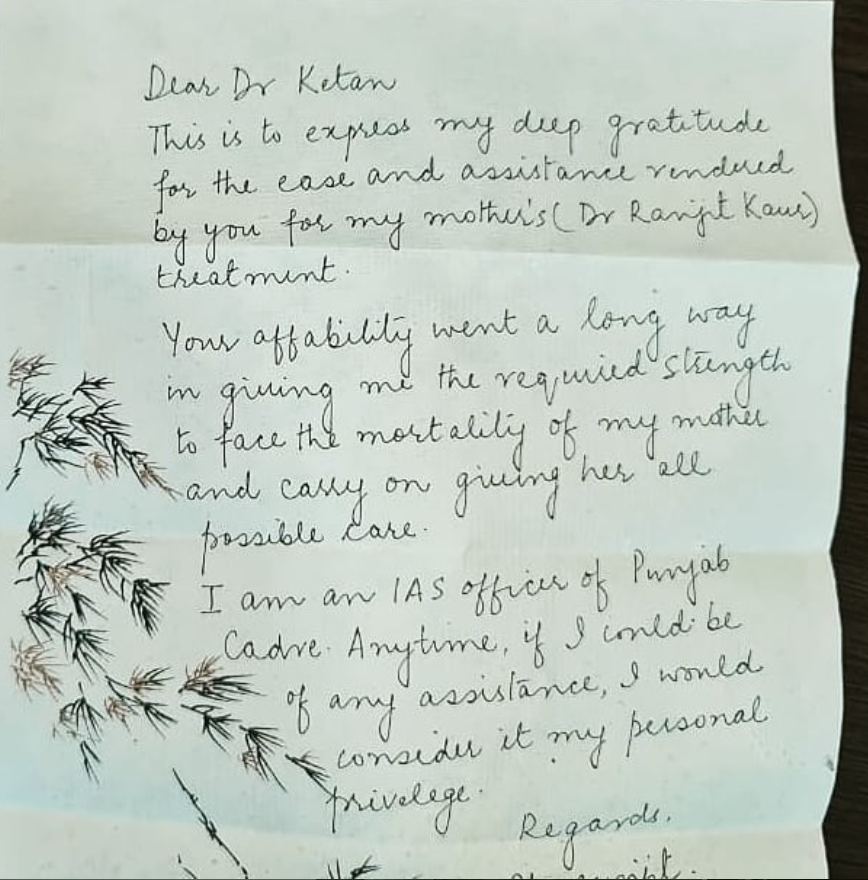 Dear Dr Ketan
This is to express my deep gratitude
for the care and assistance rendered
by you for my mother's (Dr Ranjit Kaur)
treatment.
Your affability went a long way
in giving me the required strength
to face the mortality of my mother
and carry on giving her all
possible care.
I am an IAS officer of Punjab
Cadre. Anytime, if I could be
of any assistance, I would
consider it my personal
privelege.
Regards,